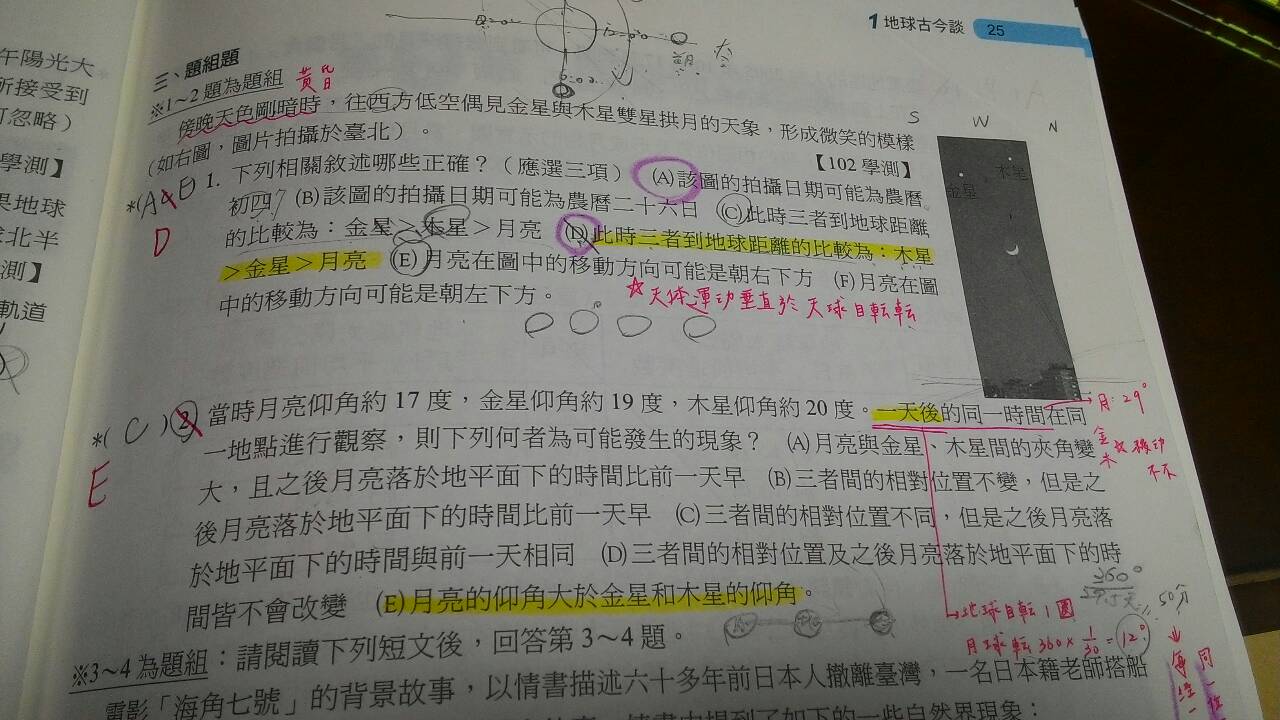 1 地球古今談 25
午陽光大
所接受到
可忽略）
學測】
果地球
求北半
測】
軌道
三、題組題
※1～2 題為題組 黃昏
傍晚天色剛暗時，往西方低空偶見金星與木星雙星拱月的天象，形成微笑的模樣
（如右圖，圖片拍攝於臺北）。 【102 學測】
1. 下列相關敘述哪些正確？（應選三項） (A)該圖的拍攝日期可能為農曆
初四 (B)該圖的拍攝日期可能為農曆二十六日 (C)此時三者到地球距離
的比較為：金星＞木星＞月亮 (D)此時三者到地球距離的比較為：木星
＞金星＞月亮 (E)月亮在圖中的移動方向可能是朝右下方 (F)月亮在圖
中的移動方向可能是朝左下方。
☆天体運动垂直於天球自転転
D
S W N
金星 木星
*( C ) 2. 當時月亮仰角約 17 度，金星仰角約 19 度，木星仰角約 20 度。一天後的同一時間在同
一地點進行觀察，則下列何者為可能發生的現象？ (A)月亮與金星、木星間的夾角變
大，且之後月亮落於地平面下的時間比前一天早 (B)三者間的相對位置不變，但是之
後月亮落於地平面下的時間比前一天早 (C)三者間的相對位置不同，但是之後月亮落
於地平面下的時間與前一天相同 (D)三者間的相對位置及之後月亮落於地平面下的時
間皆不會改變 (E)月亮的仰角大於金星和木星的仰角。
E
月：29°
地球自転 1 圈
月球転 360 × 1/30 = 12°
360°
50分
※3～4 為題組：請閱讀下列短文後，回答第 3～4 題。
電影「海角七號」的背景故事，以情書描述六十多年前日本人撤離臺灣，一名日本籍老師搭船